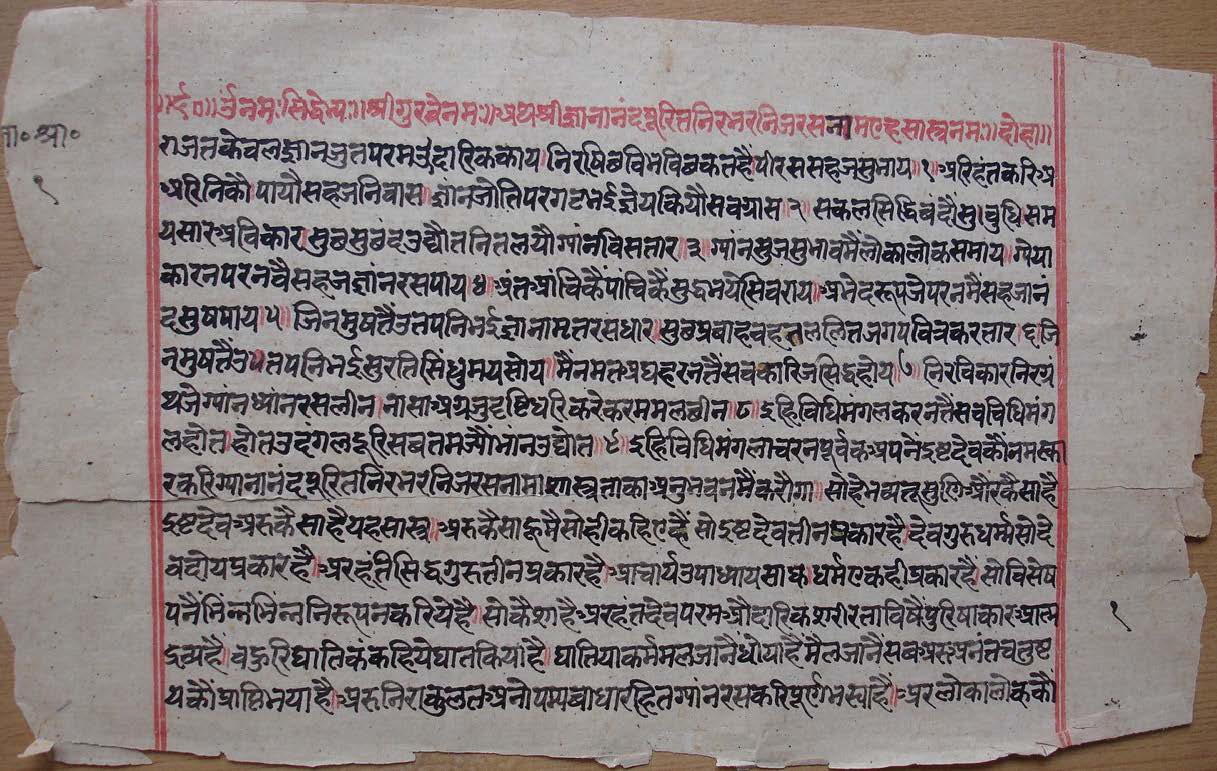 ॥र्द०॥ र्उनमःसिद्धेभ्यः॥श्रीगुरवेनमः॥अथश्रीज्ञानानंदपूरितनिरभरनिजरसनामएहसास्त्रनमः॥दोहा॥
ज्ञा०श्रा०
राजतकेवलज्ञानजुतपरमउैदारिककाय।निरषिछविभविछकतहैंपीरससहजसुभाय॥१॥अरिहंतकरिअ
१
अरिनिकौपायौसहजनिवास।ज्ञानजोतिपरगटभईज्ञेयकियौसवग्रास॥२॥सकलसिद्धिवंदौसुबुधिसम
यसारअविकार।सुछसुछंदउद्यौतनितलयौग्यांनविसतार॥३॥ग्यांनसुजसुभावमैंलोकालोकसमाय।गेया
कारनपरनवैसहजज्ञांनरसपाय॥४॥अंतआंचिकैंपांचिकैंसुद्धभयेसिवराय॥अभेदरूपजेपरनमैंसहजानं
दसुषपाय॥५॥जिनमुषतैंउतपनिभईज्ञानामृतरसधार।सुछप्रवाहवहतललितजगपवित्रकरतार॥६॥जि
नमुषतैंउपतपनिभईसुरतिसिंधुमयसोय।मैंनमतअघहरनतैंसवकारिजसिद्धहोय॥७॥निरविकारनिरग्रं
थजेग्यांनध्यांनरसलीन।नासाअग्रजुदृष्टिधरिकरेकरममलछीन॥८॥इहिविधिमंगलकरनतैंसवविधिमंग
लहोत।होतउदंगलदूरिसवतमज्यौंभांनउद्योत॥९॥इहिविधिमंगलाचरनपूर्वकअपनेइष्टदेवकौनमस्का
रकरिग्यानानंदपूरितनिरभरनिजरसनामाशास्त्रताकाअनुभवनमैंकरौंगा॥सोहेभव्यतूसुणि।औरकैसाहै
इष्टदेवअरुकैसाहैयहसास्त्र॥अरुकैसाहूमैसोहीकहिएहैं॥सोइष्टदेवतीनप्रकारहै।देवगुरुधर्म्मसोदे
वदोयप्रकारहै।अरहंतसिद्धगुरुतीनप्रकारहै।आचार्यउपाध्यायसाध॥धर्मएकहीप्रकारहै।सोविसेष
पनैंभिन्नभिन्ननिरूपनकरियेहै।सोकैशाहैअरहंतदेवपरमऔदारिकशरीरताविषैंपुरिषाकारआत्म
१
द्रव्यहै॥वहुरिघातिकंकहियेघातकियांहै॥घातियाकर्ममलजानैंधोयाहैमैलजानैंसवअरुअनंतचतुष्ट
यकौंप्राप्तिभयाहै।अरुनिराकुलतअनोपम्यवाधारहितग्यांनरसकरिपूर्णभस्याहै॥अरलोकालोककौं